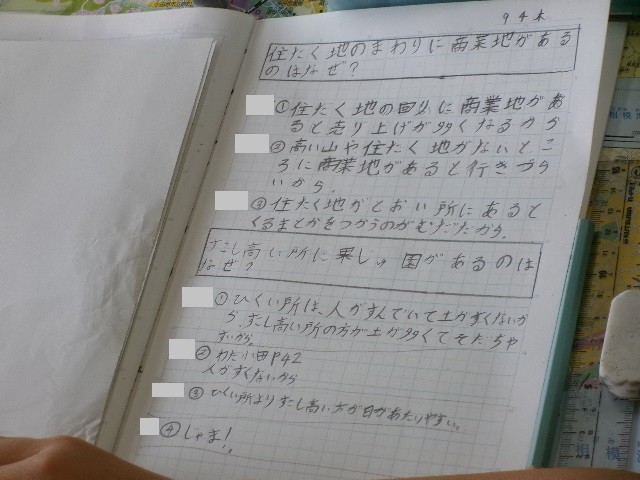 9 4 木
住たく地のまわりに商業地がある
のはなぜ?
①住たく地の回りに商業地があ
ると売り上げが多くなるから
②高い山や住たく地がないとこ
ろに商業地があると行きづら
いから。
③住たく地がとおい所にあると
くるまとかをつかうのがむだだから。
すこし高い所に果じゅ園があるのは
なぜ?
①ひくい所は、人がすんでいて土がすくないか
ら、すこし高い所の方が土が多くてそだちや
すいから。
②わたし田P42
人がすくないから
③ひくい所よりすこし高い方が日があたりやすい。
④じゃま!。
相模